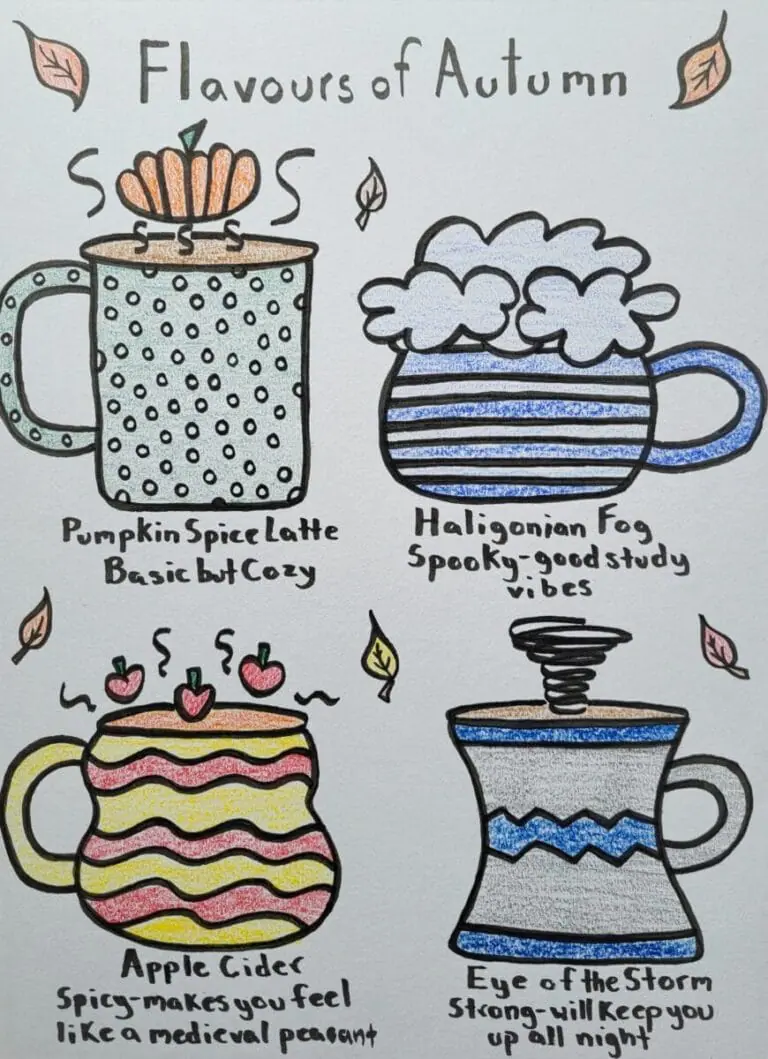 Flavours of Autumn
Pumpkin Spice Latte
Basic but Cozy
Haligonian Fog
Spooky-good study
vibes
Apple Cider
Spicy-makes you feel
like a medieval peasant
Eye of the Storm
Strong-will keep you
up all night